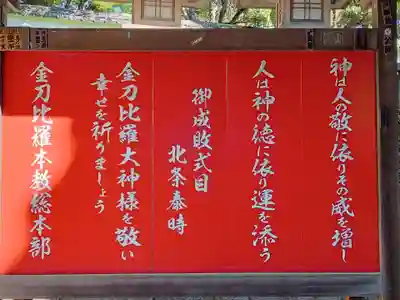 神は人の敬に依りその威を増し
人は神の徳に依り運を添う
御成敗式目
北条泰時
金刀比羅大神様を敬い
幸せを祈りましょう
金刀比羅本教総本部